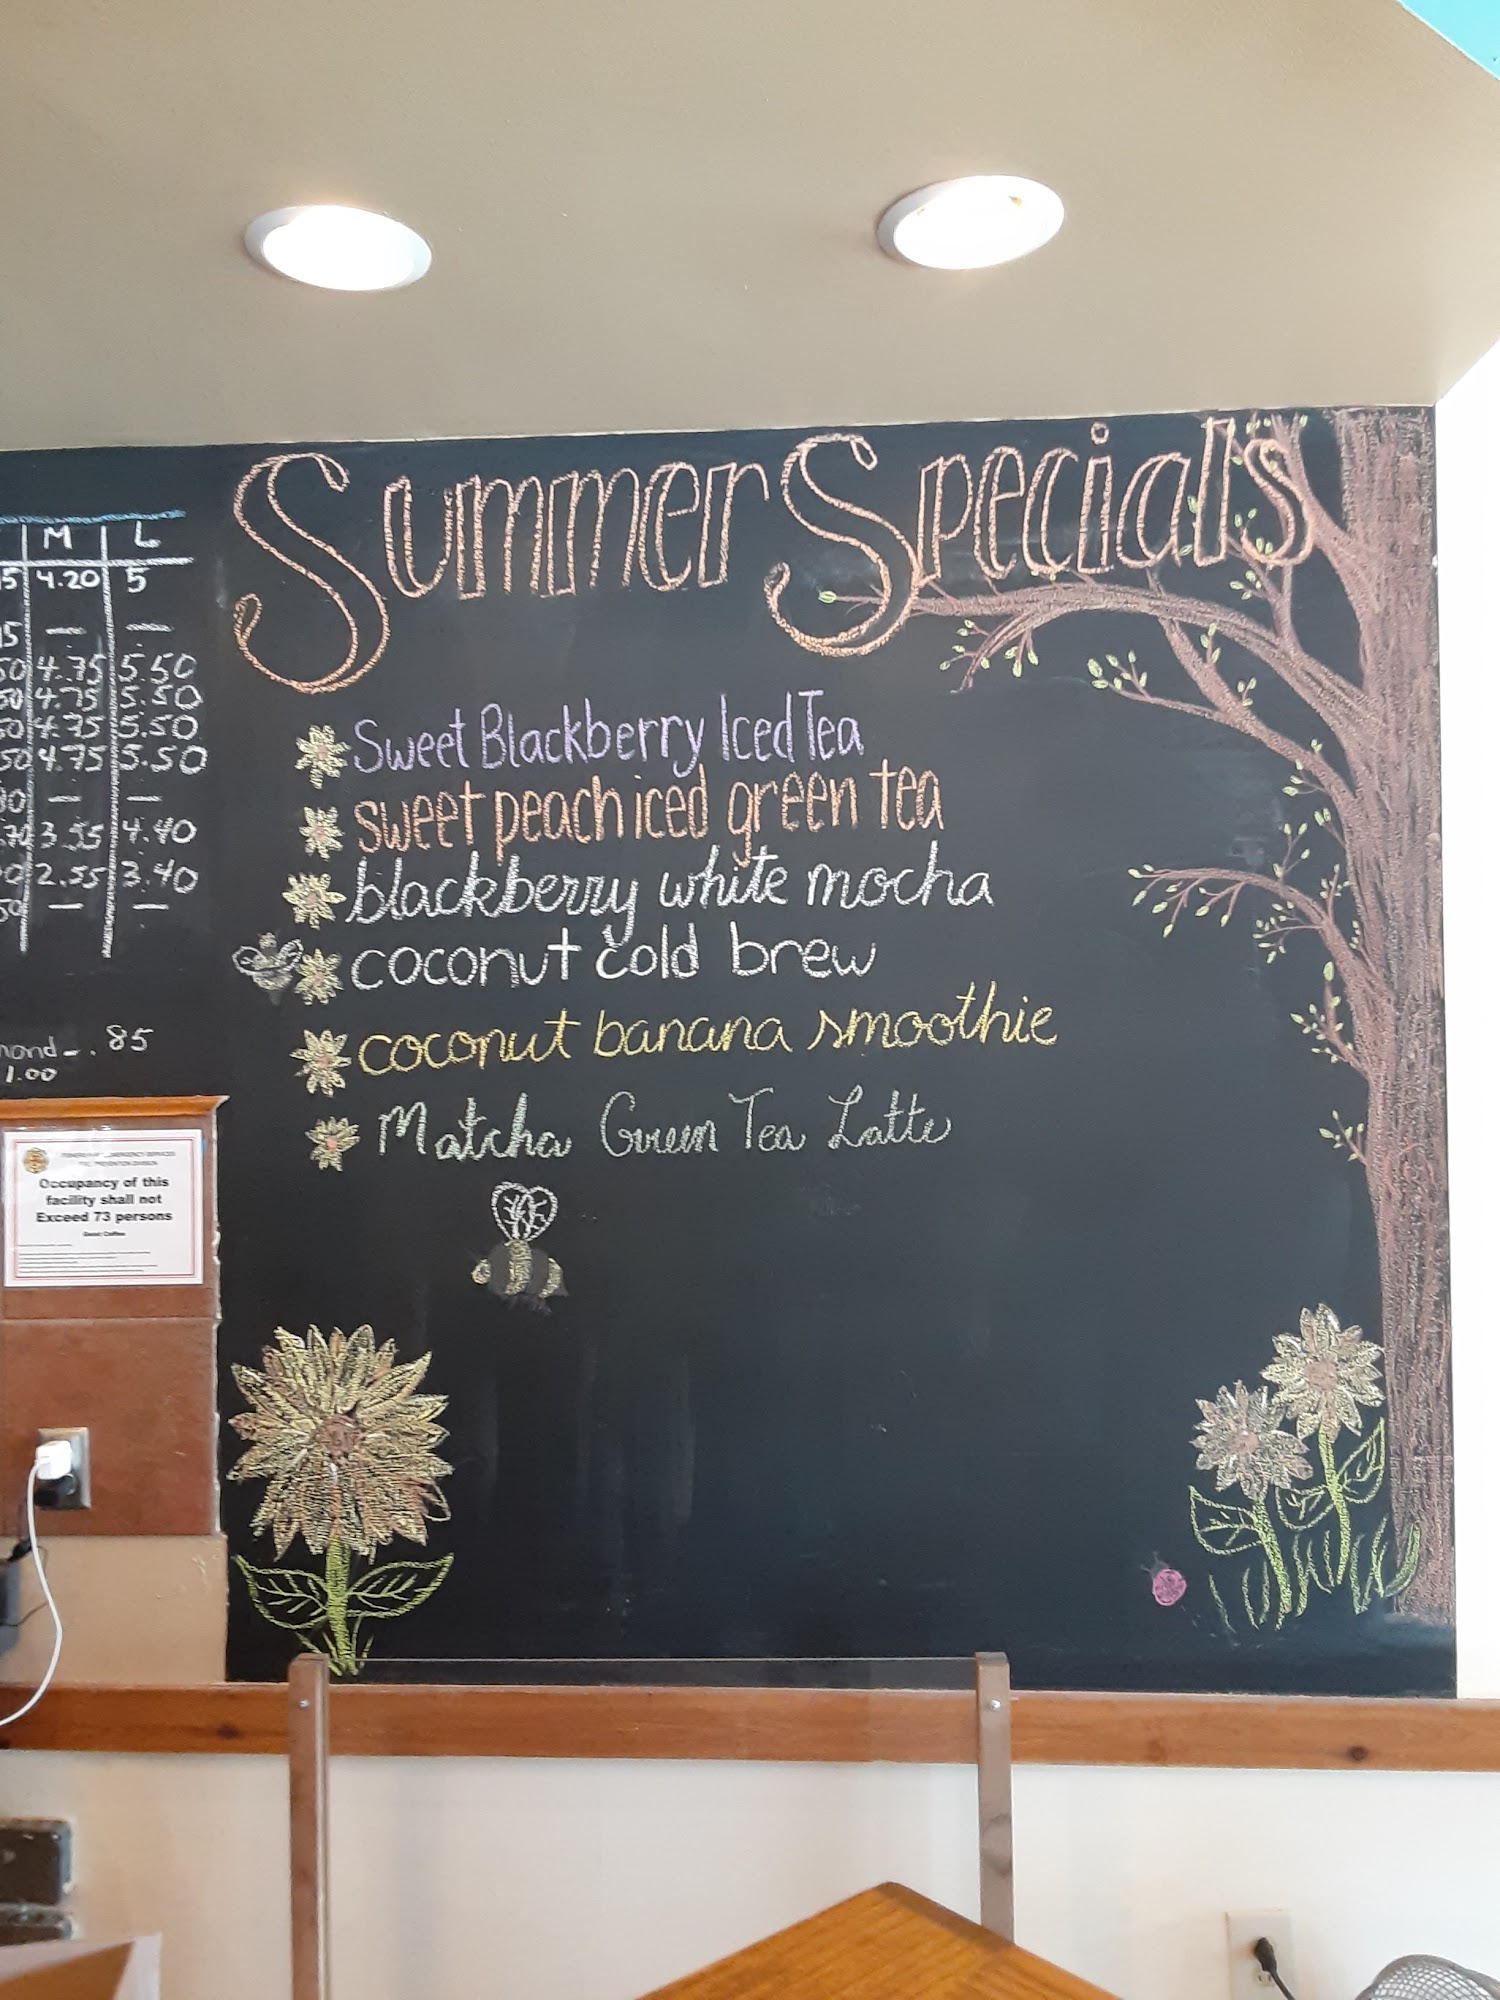 Summer Specials
M L
4.20 5
— —
4.75 5.50
4.75 5.50
4.75 5.50
4.75 5.50
— —
3.55 4.40
2.55 3.40
— —
.85
1.00
Sweet Blackberry Iced Tea
sweet peach iced green tea
blackberry white mocha
coconut cold brew
coconut banana smoothie
Matcha Green Tea Latte
Occupancy of this
facility shall not
Exceed 73 persons